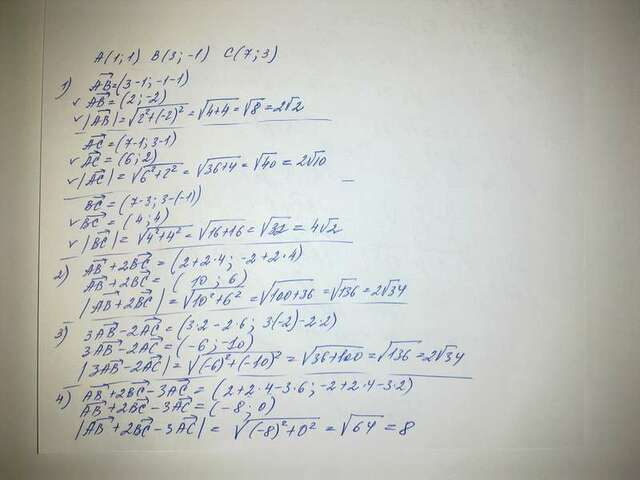 A(1;1) B(3;-1) C(7;3)
1) AB⃗=(3-1;-1-1)
✓ AB⃗ = (2;-2)
✓ |AB⃗| = √(2²+(-2)²) = √(4+4) = √8 = 2√2
AC⃗ = (7-1;3-1)
✓ AC⃗ = (6;2)
✓ |AC⃗| = √(6²+2²) = √(36+4) = √40 = 2√10
BC⃗ = (7-3;3-(-1))
✓ BC⃗ = (4;4)
✓ |BC⃗| = √(4²+4²) = √(16+16) = √32 = 4√2
2) AB⃗+2BC⃗ = (2+2·4;-2+2·4)
AB⃗+2BC⃗ = (10;6)
|AB⃗+2BC⃗| = √(10²+6²) = √(100+36) = √136 = 2√34
3) 3AB⃗-2AC⃗ = (3·2-2·6; 3(-2)-2·2)
3AB⃗-2AC⃗ = (-6;-10)
|3AB⃗-2AC⃗| = √((-6)²+(-10)²) = √(36+100) = √136 = 2√34
4) AB⃗+2BC⃗-3AC⃗ = (2+2·4-3·6;-2+2·4-3·2)
AB⃗+2BC⃗-3AC⃗ = (-8;0)
|AB⃗+2BC⃗-3AC⃗| = √((-8)²+0²) = √64 = 8